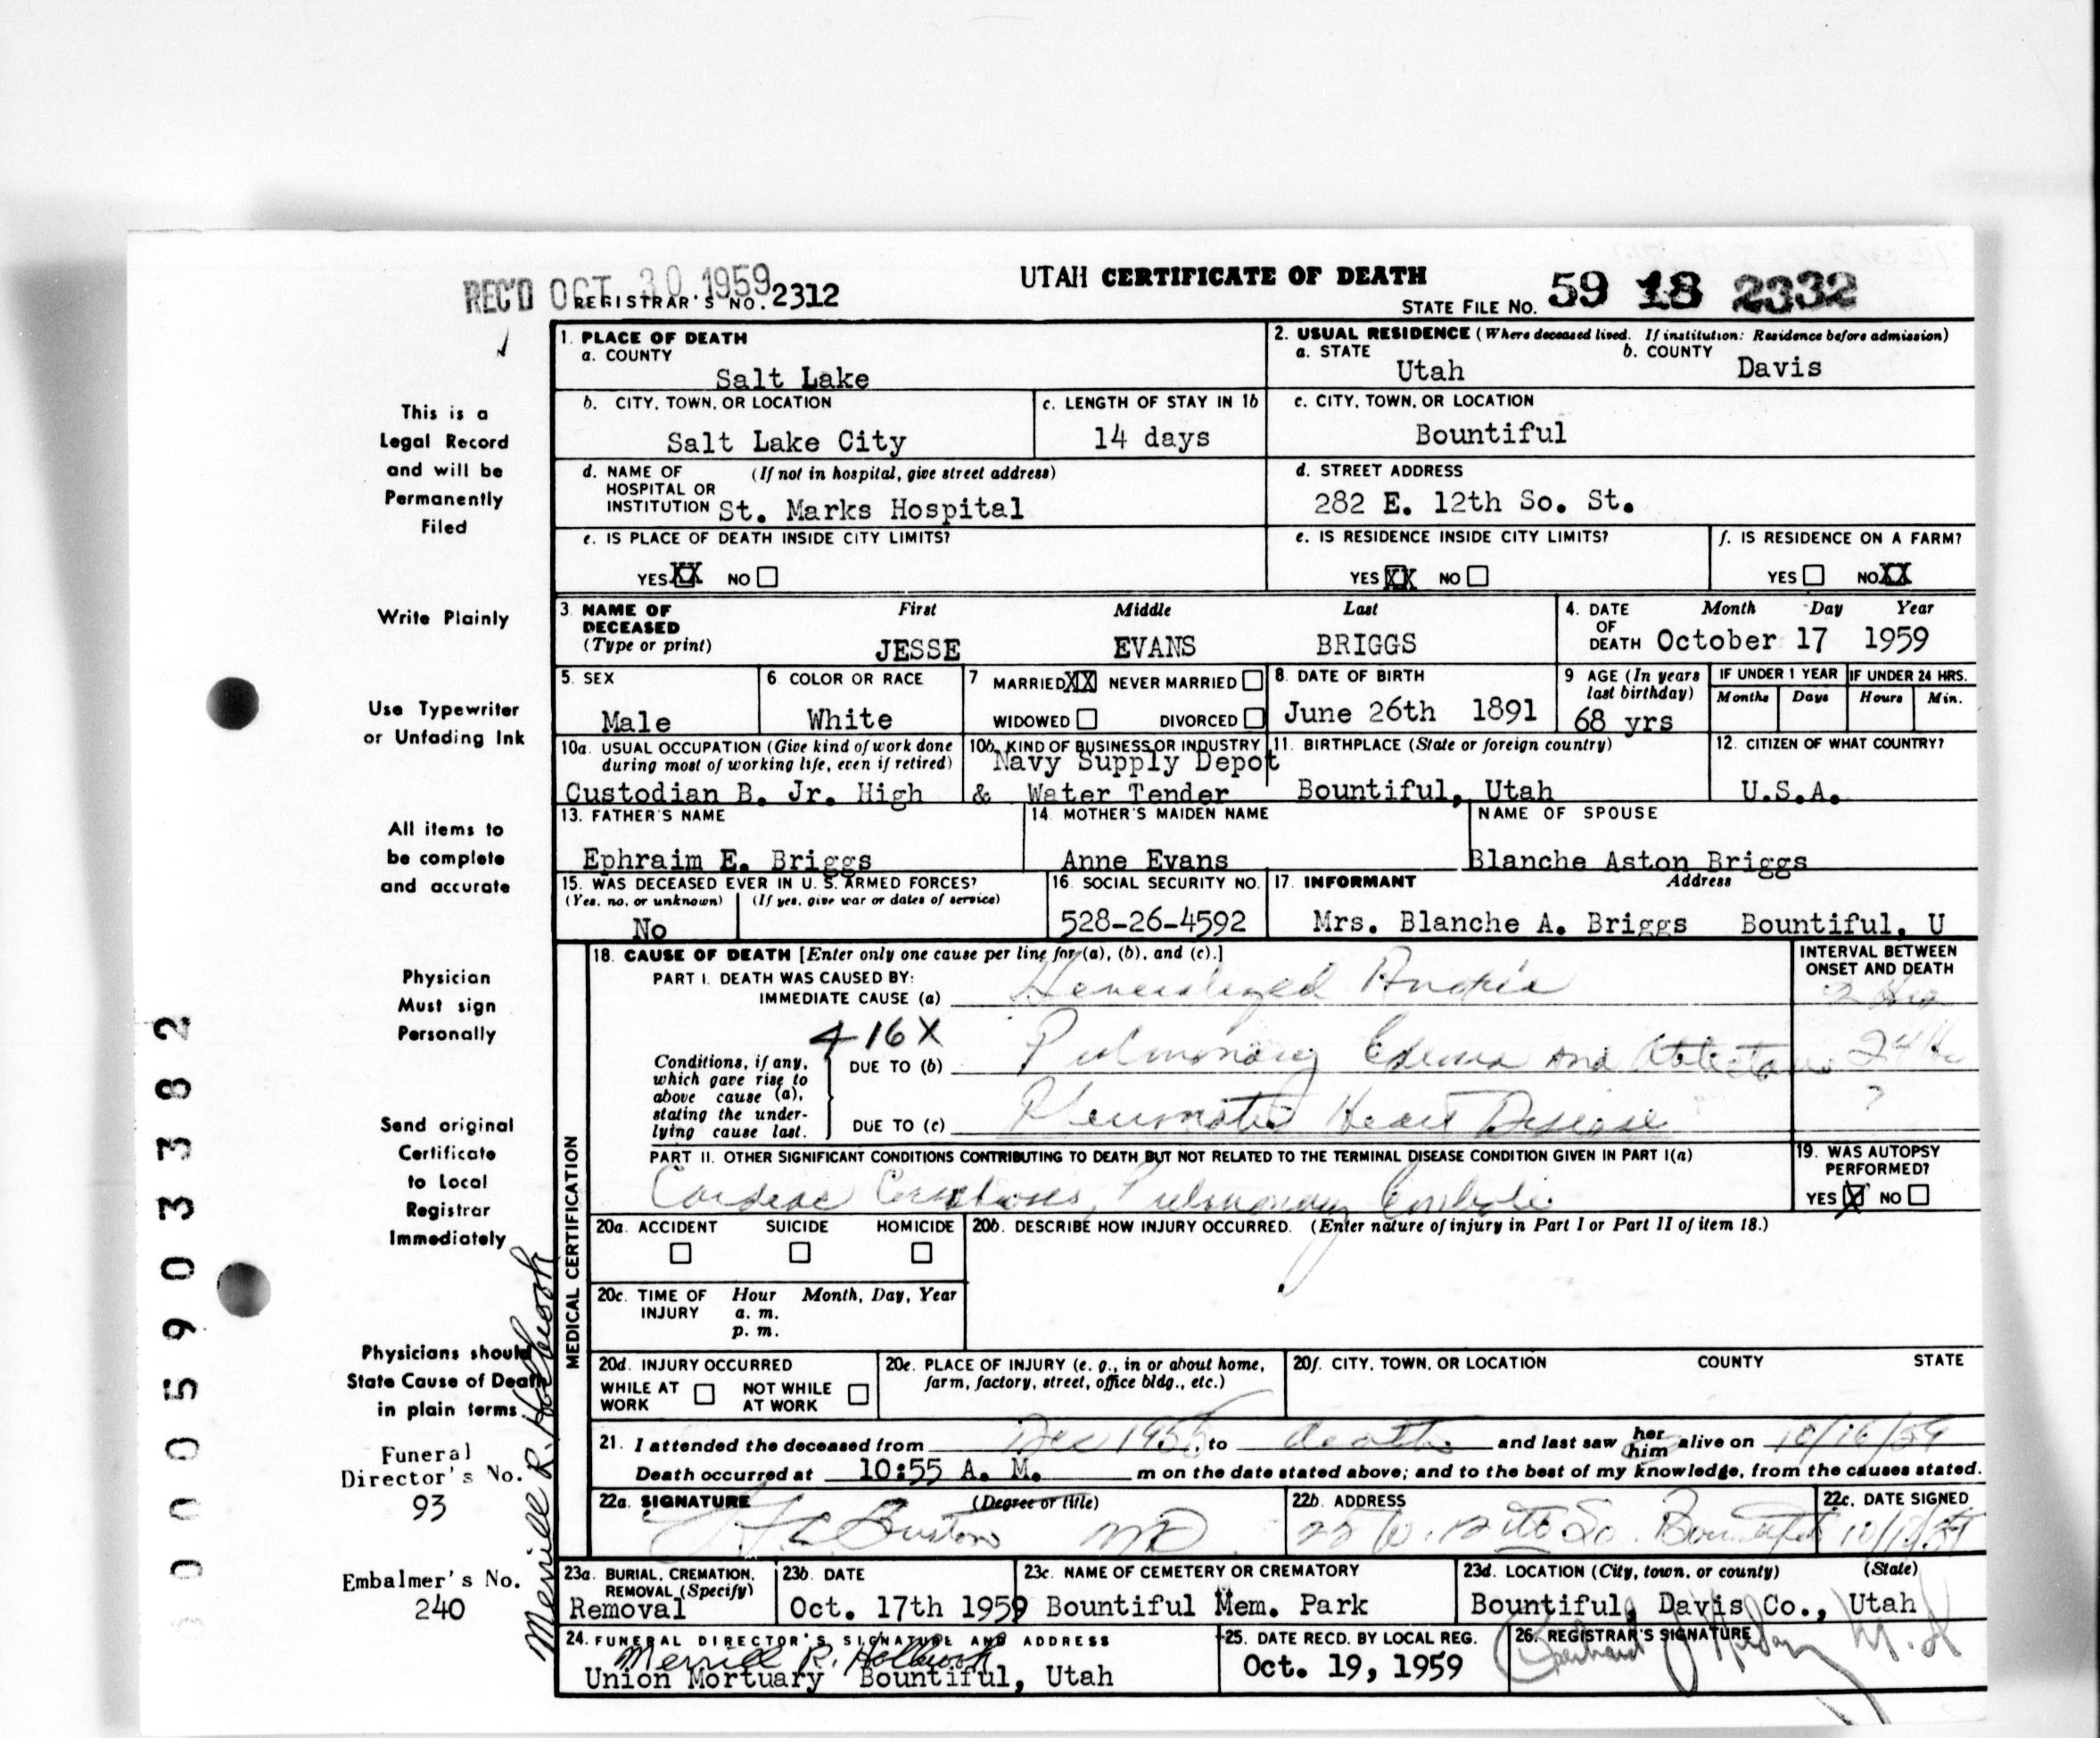 REC'D OCT 30 1959
REGISTRAR'S NO. 2312
UTAH CERTIFICATE OF DEATH
STATE FILE NO. 59 18 2332
1. PLACE OF DEATH
a. COUNTY
Salt Lake
2. USUAL RESIDENCE (Where deceased lived. If institution: Residence before admission)
a. STATE b. COUNTY
Utah Davis
b. CITY, TOWN, OR LOCATION
Salt Lake City
c. LENGTH OF STAY IN 1b
14 days
c. CITY, TOWN, OR LOCATION
Bountiful
d. NAME OF (If not in hospital, give street address)
HOSPITAL OR
INSTITUTION St. Marks Hospital
d. STREET ADDRESS
282 E. 12th So. St.
e. IS PLACE OF DEATH INSIDE CITY LIMITS?
YES XX NO
e. IS RESIDENCE INSIDE CITY LIMITS?
YES XX NO
f. IS RESIDENCE ON A FARM?
YES NO XX
3. NAME OF DECEASED
(Type or print)
First Middle Last
JESSE EVANS BRIGGS
4. DATE OF DEATH
Month Day Year
October 17 1959
5. SEX
Male
6. COLOR OR RACE
White
7 MARRIED XX NEVER MARRIED
WIDOWED DIVORCED
8. DATE OF BIRTH
June 26th 1891
9 AGE (In years last birthday)
68 yrs
IF UNDER 1 YEAR
Months Days
IF UNDER 24 HRS.
Hours Min.
10a. USUAL OCCUPATION (Give kind of work done
during most of working life, even if retired)
Custodian B. Jr. High
10b. KIND OF BUSINESS OR INDUSTRY
Navy Supply Depot
& Water Tender
11. BIRTHPLACE (State or foreign country)
Bountiful, Utah
12. CITIZEN OF WHAT COUNTRY?
U.S.A.
13. FATHER'S NAME
Ephraim E. Briggs
14. MOTHER'S MAIDEN NAME
Anne Evans
NAME OF SPOUSE
Blanche Aston Briggs
15. WAS DECEASED EVER IN U. S. ARMED FORCES?
(Yes, no, or unknown) (If yes, give war or dates of service)
No
16. SOCIAL SECURITY NO.
528-26-4592
17. INFORMANT Address
Mrs. Blanche A. Briggs Bountiful, U
18. CAUSE OF DEATH [Enter only one cause per line for (a), (b), and (c).]
PART I. DEATH WAS CAUSED BY:
IMMEDIATE CAUSE (a) Generalized
INTERVAL BETWEEN
ONSET AND DEATH
416X
Conditions, if any,
which gave rise to
above cause (a),
stating the under-
lying cause last.
DUE TO (b) Pulmonary Edema and 24
DUE TO (c) Rheumatic Heart Disease ?
PART II. OTHER SIGNIFICANT CONDITIONS CONTRIBUTING TO DEATH BUT NOT RELATED TO THE TERMINAL DISEASE CONDITION GIVEN IN PART I(a)
Cardiac Cirrhosis, Pulmonary Emboli
19. WAS AUTOPSY
PERFORMED?
YES X NO
20a. ACCIDENT SUICIDE HOMICIDE
20b. DESCRIBE HOW INJURY OCCURRED. (Enter nature of injury in Part I or Part II of item 18.)
20c. TIME OF INJURY
Hour Month, Day, Year
a. m.
p. m.
20d. INJURY OCCURRED
WHILE AT WORK NOT WHILE AT WORK
20e. PLACE OF INJURY (e. g., in or about home,
farm, factory, street, office bldg., etc.)
20f. CITY, TOWN, OR LOCATION COUNTY STATE
21. I attended the deceased from Dec 1955, to death and last saw her him alive on 10/16/59
Death occurred at 10:55 A. M. m on the date stated above; and to the best of my knowledge, from the causes stated.
22a. SIGNATURE (Degree or title)
MD
22b. ADDRESS
So. Bountiful
22c. DATE SIGNED
MEDICAL CERTIFICATION
23a. BURIAL, CREMATION,
REMOVAL (Specify)
Removal
23b. DATE
Oct. 17th 1959
23c. NAME OF CEMETERY OR CREMATORY
Bountiful Mem. Park
23d. LOCATION (City, town, or county) (State)
Bountiful, Davis Co., Utah
24. FUNERAL DIRECTOR'S SIGNATURE AND ADDRESS
Merrill R. Holbrook
Union Mortuary Bountiful, Utah
25. DATE RECD. BY LOCAL REG.
Oct. 19, 1959
26. REGISTRAR'S SIGNATURE
This is a
Legal Record
and will be
Permanently
Filed
Write Plainly
Use Typewriter
or Unfading Ink
All items to
be complete
and accurate
Physician
Must sign
Personally
Send original
Certificate
to Local
Registrar
Immediately
Physicians should
State Cause of Death
in plain terms
Funeral
Director's No.
93
Embalmer's No.
240
Merrill R. Holbrook
0005903382